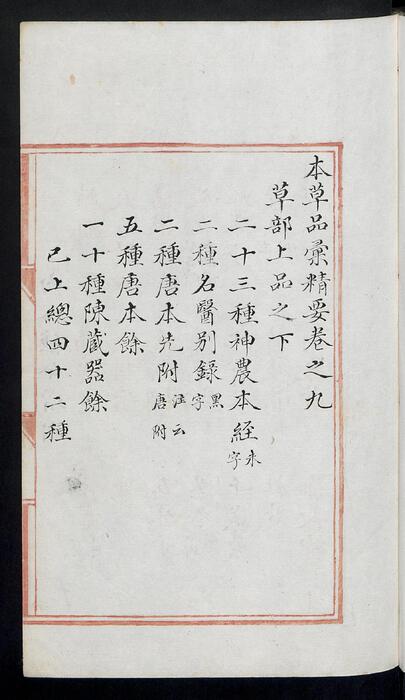 本草品彙精要卷之九
草部上品之下
二十三種神農本經朱字
二種名醫别錄黑字
二種唐本先附注云唐附
五種唐本餘
一十種陳藏器餘
已上總四十二種